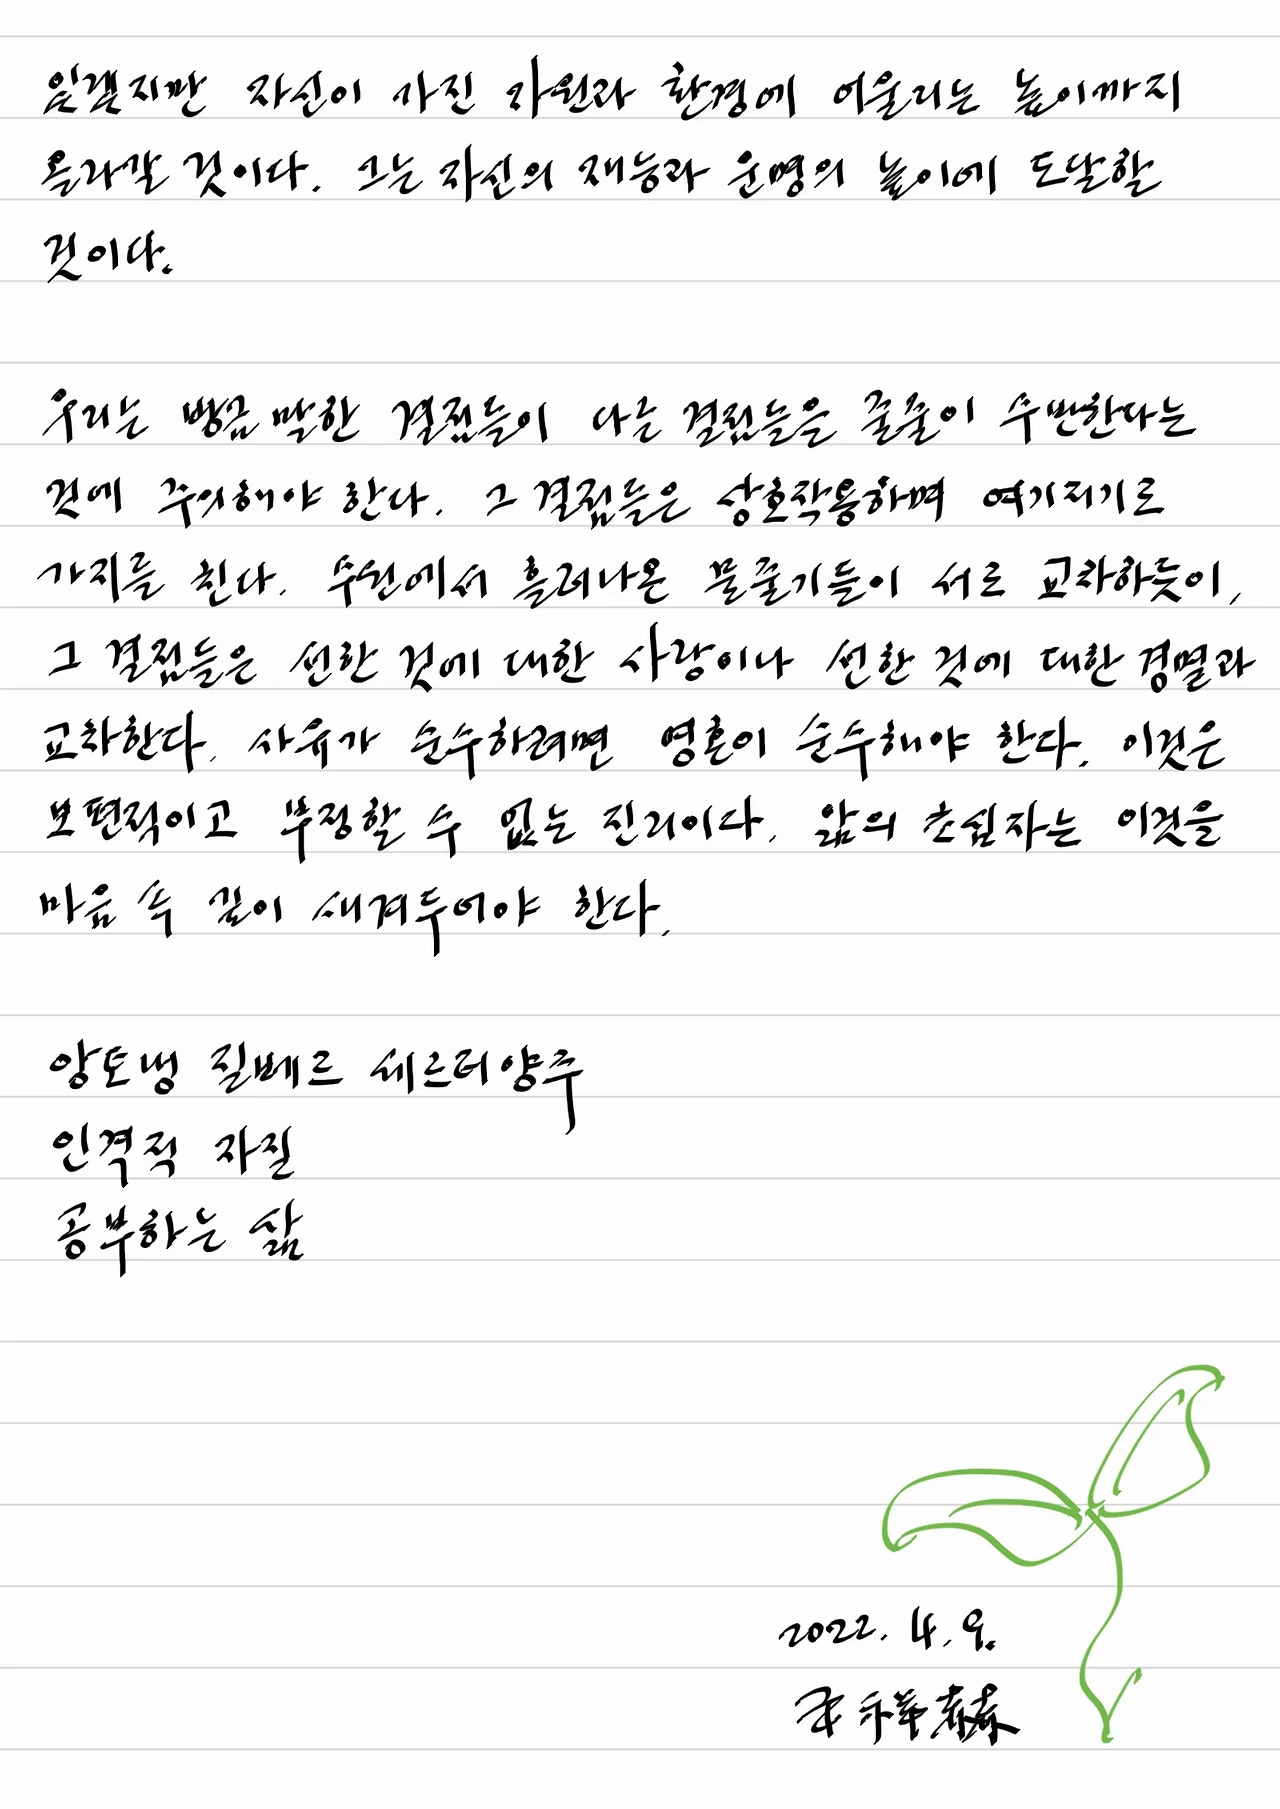 있겠지만 자신이 가진 자원과 환경에 어울리는 높이까지
올라갈 것이다. 그는 자신의 재능과 운명의 높이에 도달할
것이다.
우리는 방금 말한 결점들이 다른 결점들을 줄줄이 수반한다는
것에 주의해야 한다. 그 결점들은 상호작용하며 여기저기로
가지를 친다. 수원에서 흘러나온 물줄기들이 서로 교차하듯이,
그 결점들은 선한 것에 대한 사랑이나 선한 것에 대한 경멸과
교차한다. 사유가 순수하려면 영혼이 순수해야 한다. 이것은
보편적이고 부정할 수 없는 진리이다. 앎의 초심자는 이것을
마음 속 깊이 새겨두어야 한다.
앙토냉 질베르 세르티양주
인격적 자질
공부하는 삶
2022. 4. 9.
祥赫